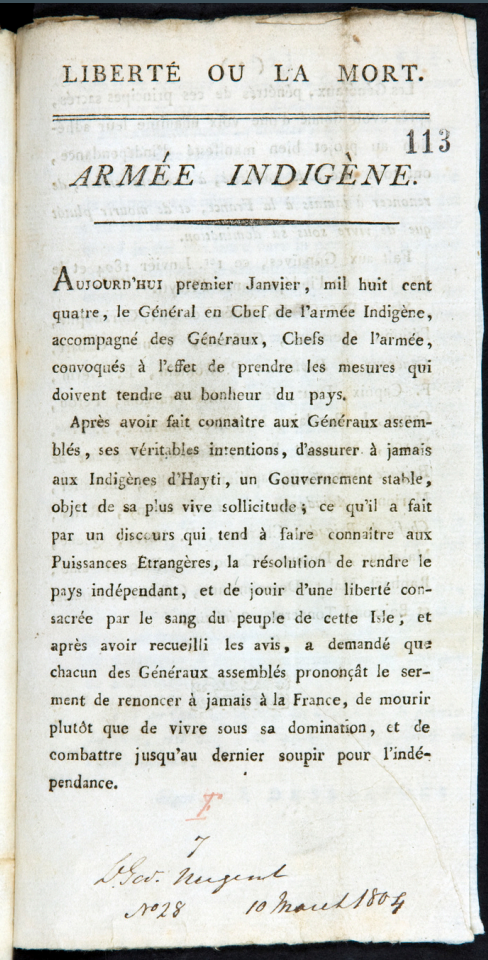 LIBERTÉ OU LA MORT.
113
ARMÉE INDIGÈNE.
AUJOURD'HUI premier Janvier, mil huit cent
quatre, le Général en Chef de l'armée Indigène,
accompagné des Généraux, Chefs de l'armée,
convoqués à l'effet de prendre les mesures qui
doivent tendre au bonheur du pays.
Après avoir fait connaître aux Généraux assem-
blés, ses véritables intentions, d'assurer à jamais
aux Indigènes d'Hayti, un Gouvernement stable,
objet de sa plus vive sollicitude; ce qu'il a fait
par un discours qui tend à faire connaître aux
Puissances Étrangères, la résolution de rendre le
pays indépendant, et de jouir d'une liberté con-
sacrée par le sang du peuple de cette Isle; et
après avoir recueilli les avis, a demandé que
chacun des Généraux assemblés prononçât le ser-
ment de renoncer à jamais à la France, de mourir
plutôt que de vivre sous sa domination, et de
combattre jusqu'au dernier soupir pour l'indé-
pendance.
F
7
Nugent
No 28 10 March 1804